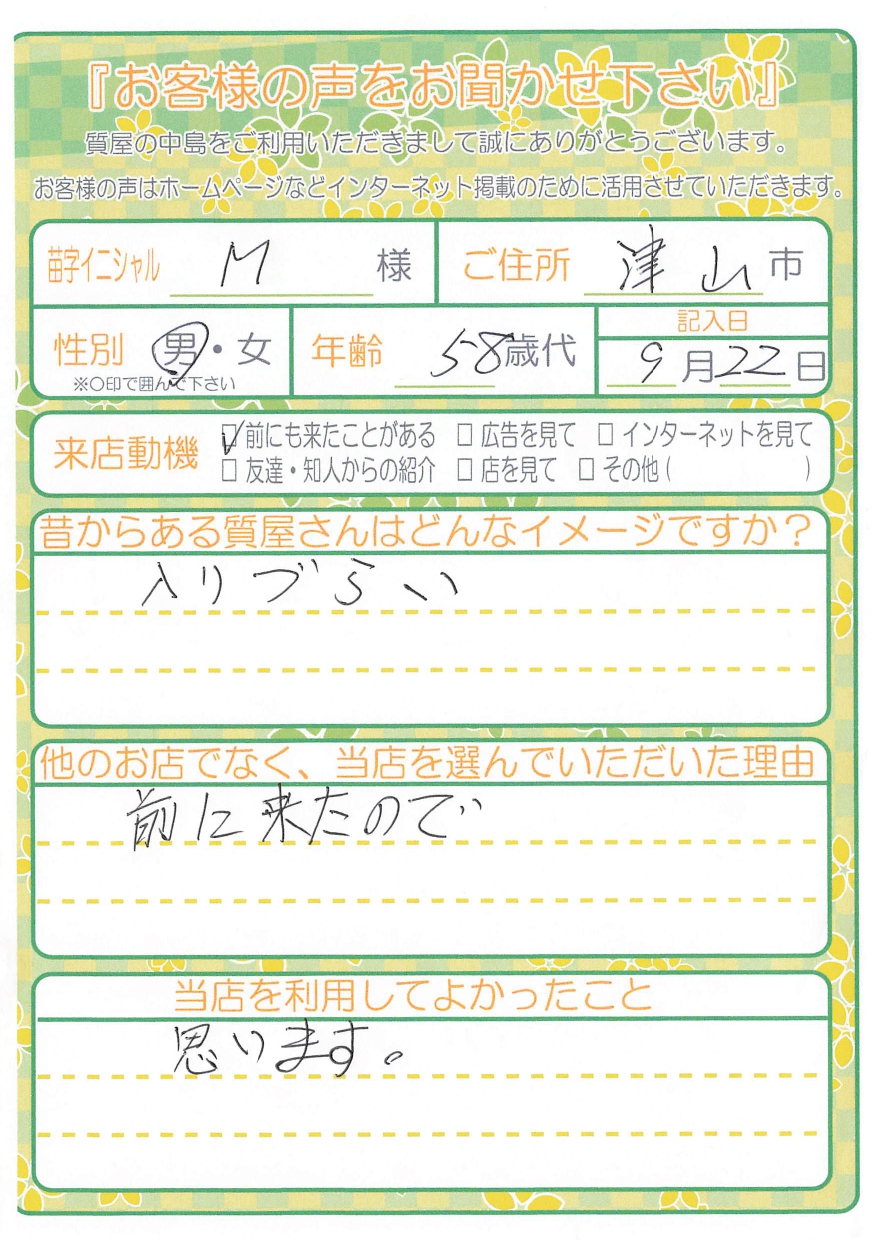 『お客様の声をお聞かせ下さい』
質屋の中島をご利用いただきまして誠にありがとうございます。
お客様の声はホームページなどインターネット掲載のために活用させていただきます。
苗字イニシャル M 様 ご住所 津山市
性別 男・女 年齢 58歳代 記入日
※○印で囲んで下さい 9月22日
来店動機 □前にも来たことがある □広告を見て □インターネットを見て
□友達・知人からの紹介 □店を見て □その他( )
昔からある質屋さんはどんなイメージですか？
入りづらい
他のお店でなく、当店を選んでいただいた理由
前に来たので
当店を利用してよかったこと
思います。